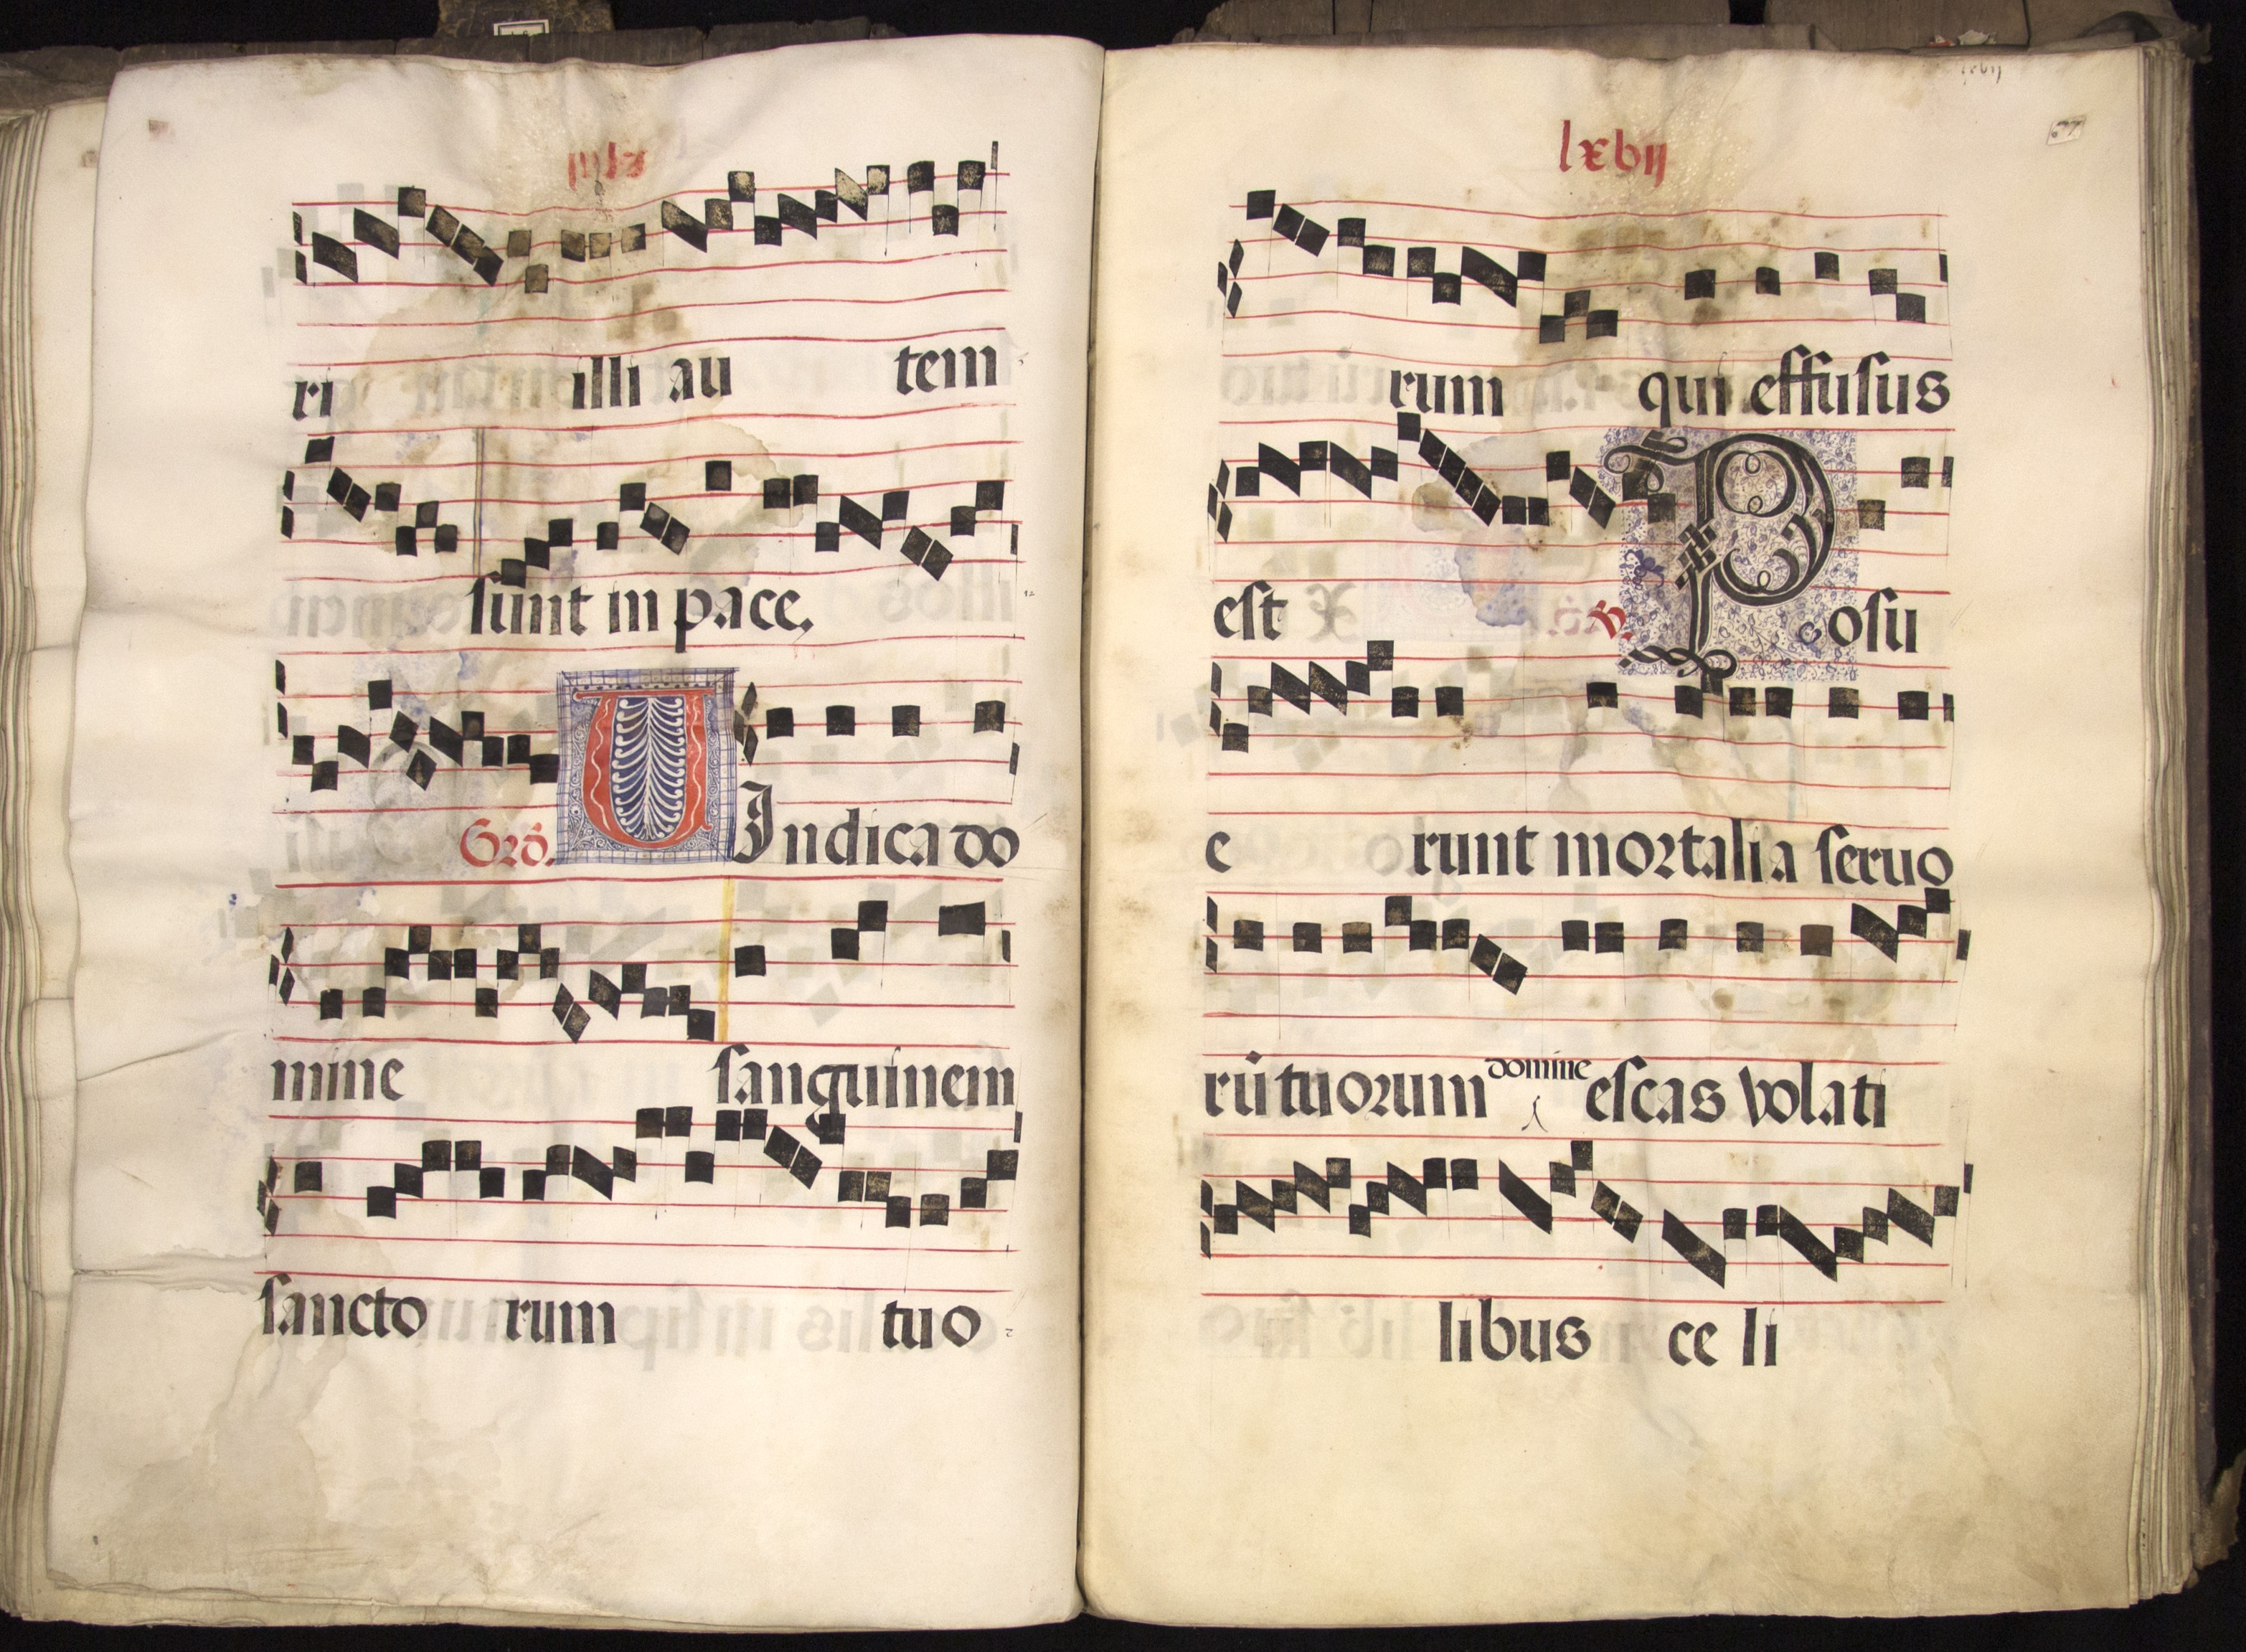 ri illi au tem
sunt in pace.
Grō. UIndica do
mine sanguinem
sancto rum tuo
lxbij
67
rum qui effusus
est ℣. Posu
e runt mortalia seruo
rū tuorum domine escas volati
libus ce li